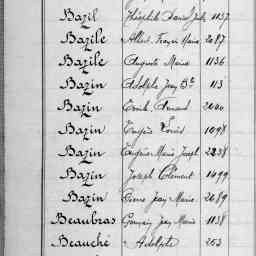 Bazil Théophile David Jules 1137
Bazile Albert François Marie 2087
Bazile Auguste Marie 1136
Bazin Adolphe Jean Bte 113
Bazin Émile Armand 2040
Bazin Eugène Louis 1098
Bazin Eugène Marie Joseph 2238
Bazin Joseph Clément 1499
Bazin Pierre Jean Marie 2689
Beaubras Jean Marie 1138
Beauché Adolphe 253